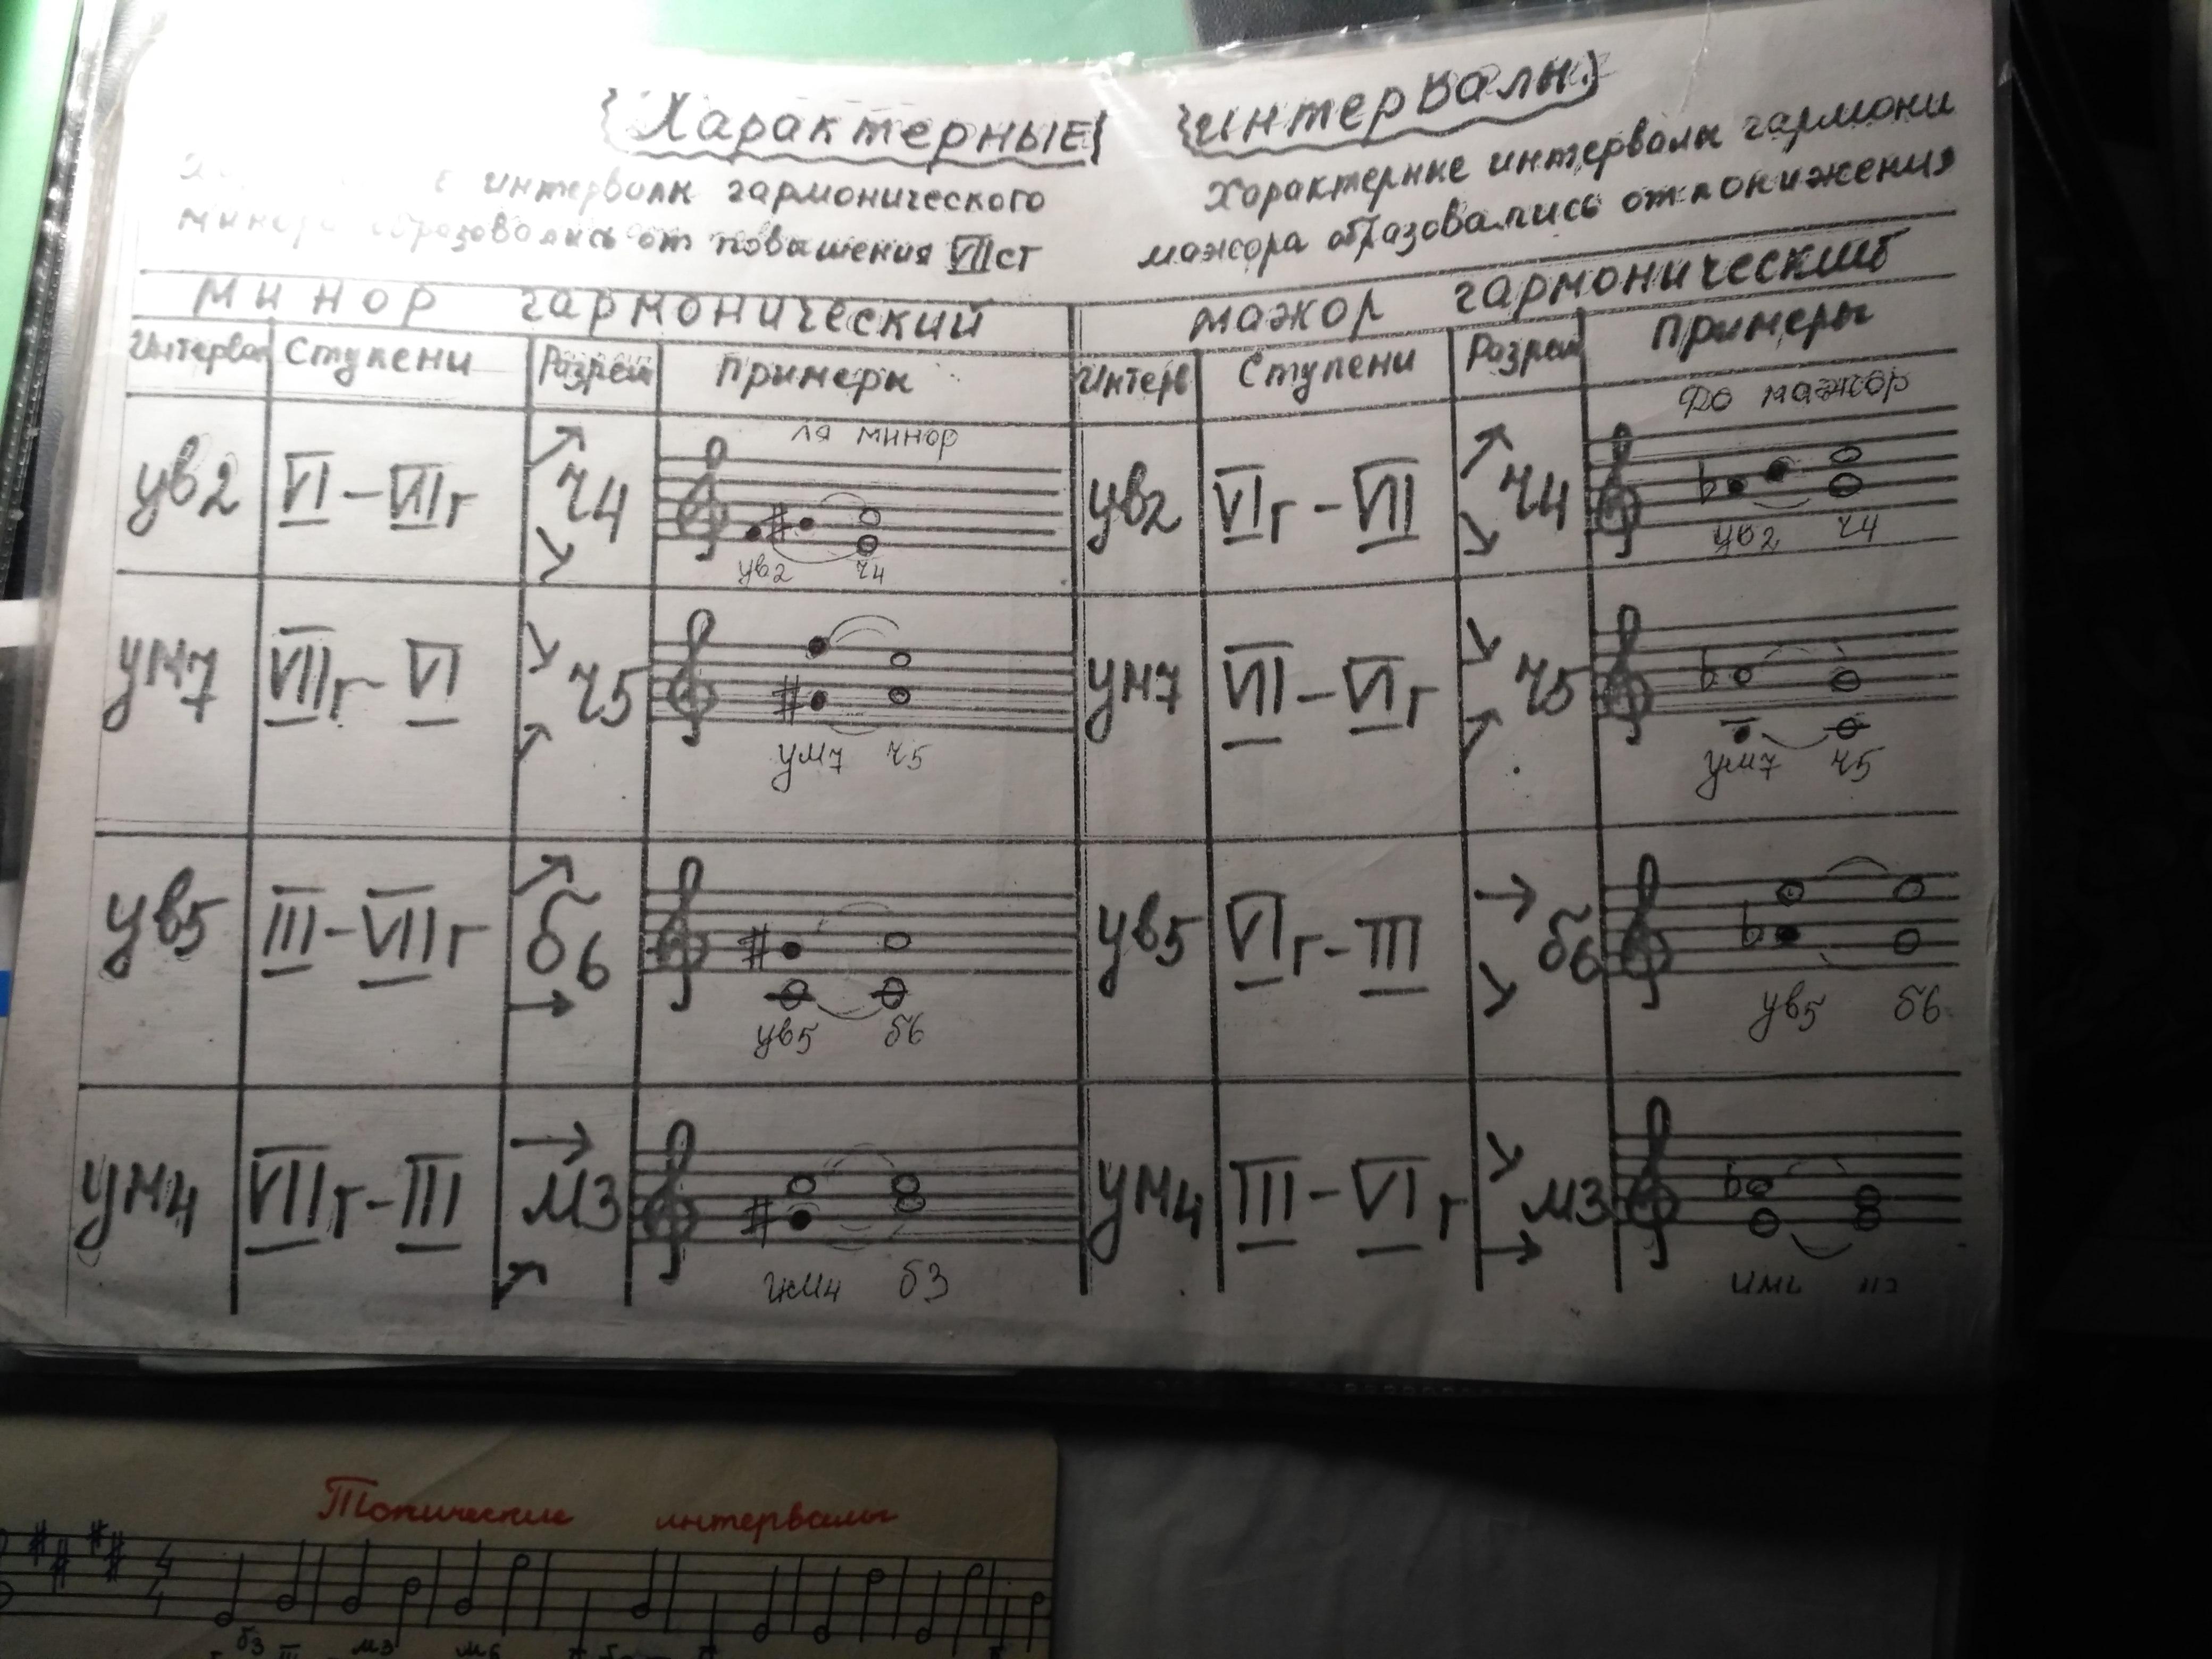 {Характерные} {интервалы}
интервалы гармонического
минора образовались от повышения VII ст
Характерные интервалы гармони
мажора образовались от понижения
минор гармонический
мажор гармонический
Интервал Ступени Разреш Примеры
Интерв Ступени Разреш Примеры
ля минор
До мажор
ув2 VI – VIIг ч4
ув2 ч4
ув2 VIг – VII ч4
ув2 ч4
ум7 VIIг – VI ч5
ум7 ч5
ум7 VII – VIг ч5
ум7 ч5
ув5 III – VIIг б6
ув5 б6
ув5 VIг – III б6
ув5 б6
ум4 VIIг – III м3
ум4 б3
ум4 III – VIг м3
Тонические интервалы
б3 м3 м6
III